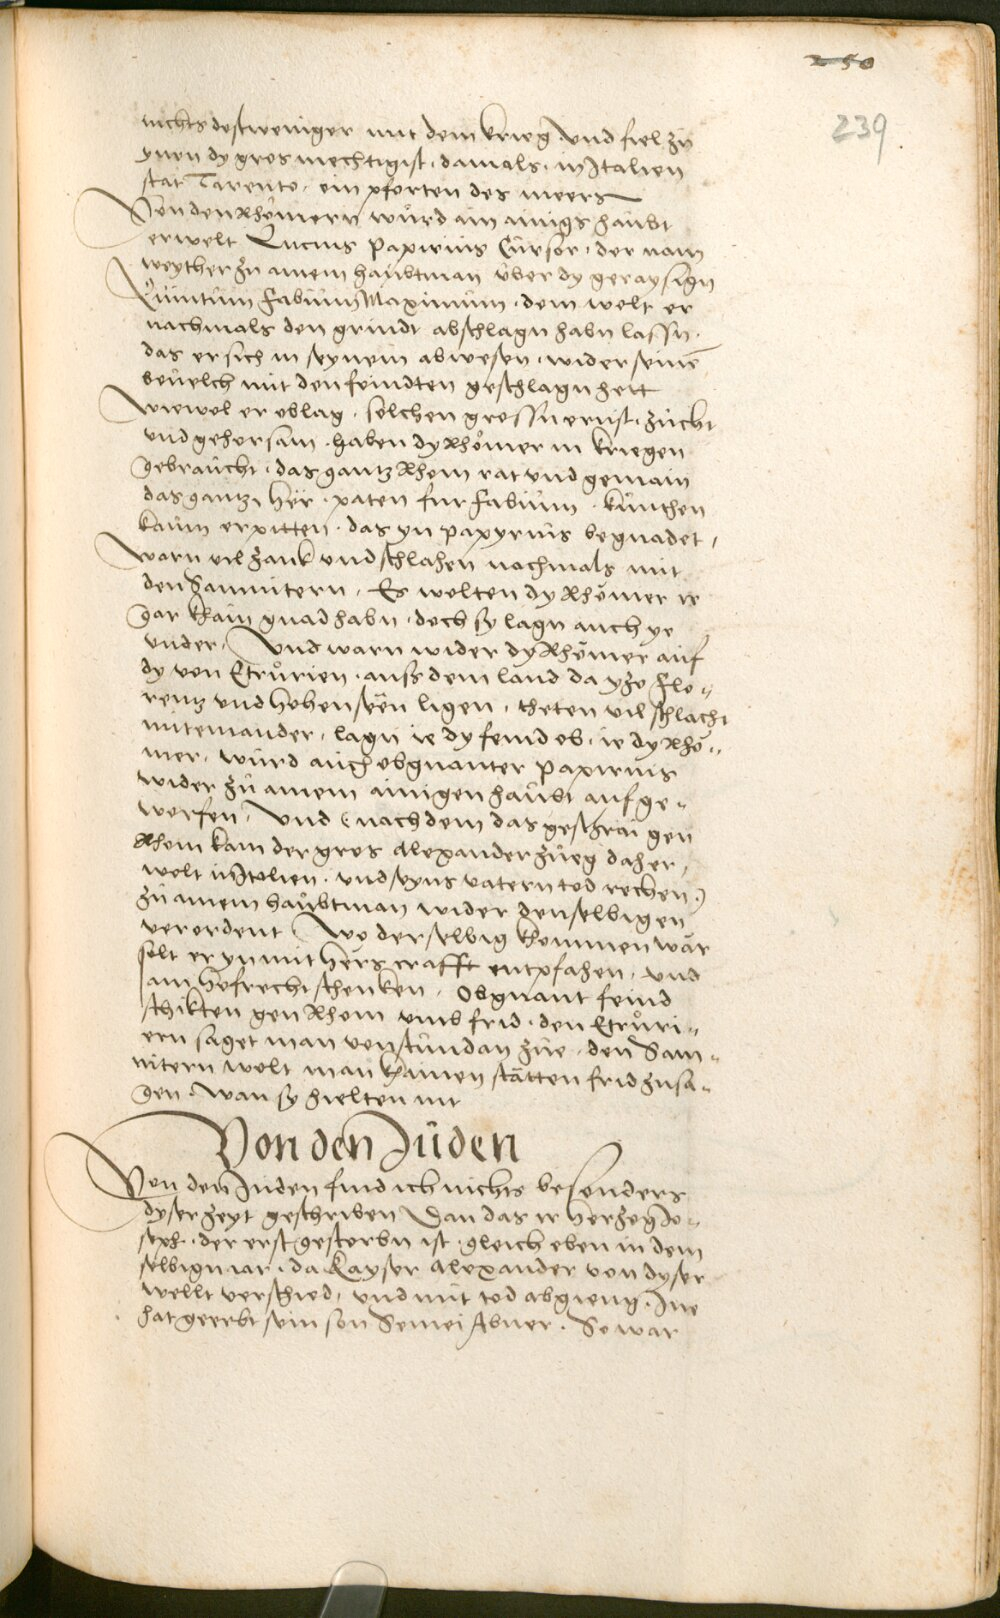 250
239
nichts destweniger mit dem krieg. Vnd fiel zu
ynen dy gros mechtigist. damals. in Italien
stat Tarento. ein pforten des meers
Von den Rhömern würd ain ainigs haubt
erwelt Lucius Papirius Cursor. der nam
weyther zu ainem haubtman vber dy geraysign
Quintum Fabium Maximum. dem wolt er
nachmals den grindt abschlagn habn lassn.
das er sich in seynem abwesen. wider seine
beuelch mit den feindten geschlagn hett
Wiewol er oblag. solchen grossn ernst. zucht
vnd gehorsam. haben dy Rhömer in kriegen
gebraucht. das gantz Rhom rat vnd gemain
das gantz hër. paten fur Fabium. kunthen
kaum erpitten. das yn Papyrius begnadet.
Warn vil zank vnd schlahen nachmals mit
den Samnitern. Es wolten dy Rhömer ir
gar khain gnad habn. doch sy lagn auch ye
vnder. Vnd warn wider dy Rhömer auf
dy von Etrurien. auss dem land da yzo Flo-
rentz vnd hohen seën ligen. theten vil schlacht
miteinander. lagn ie dy feind ob. ie dy Rhö-
mer. würd auch obgnanter Papirius
wider zu ainem ainigen haubt aufge-
worfen. Vnd (nachdem das geschrai gen
Rhom kam der gros Alexander züg daher,
wolt in Italien. vnd seyns vatern tod rechen.)
zu ainem haubtman wider denselbigen
verordent Wo derselbig khommen wär
solt er yn mit hërs crafft entpfahen. vnd
am hofrecht schenken. Obgnant feind
schikten gen Rhom vmb frid. den Etruri-
ern saget man von stundan zue. den Sam-
nitern wolt man khainen stätten frid zusa-
gen. Wan sy hielten nit
Von den Juden
Von den Juden find ich nichts besonders
dyser zeyt geschriben Dan das ir herzog Jo-
seph. der erst gestorbn ist. gleich eben in dem
selbign iar. da Kayser Alexander von dyser
wellt verschied. vnd mit tod abgieng. Ine
hat geerbt sein son Semei Abner. So war